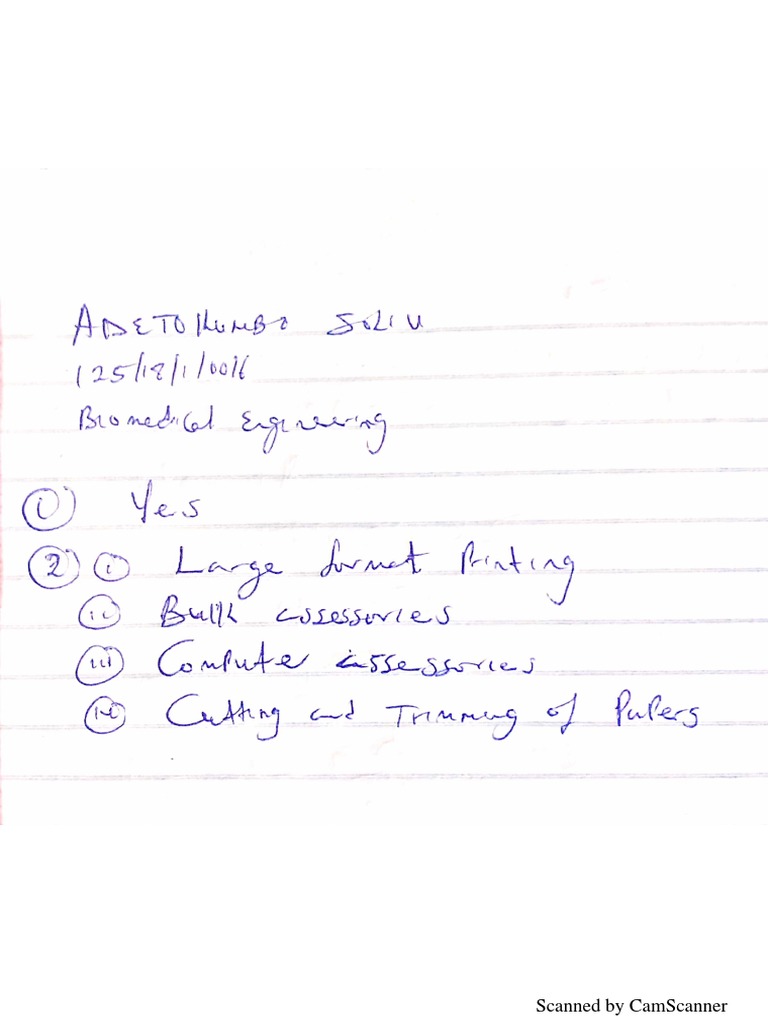 ADETOKUNBO SOLIU
125/18/1/0016
Biomedical Engineering
① Yes
② i Large format Printing
ii Bulk assessories
iii Computer assessories
iv Cutting and Trimming of Papers
Scanned by CamScanner